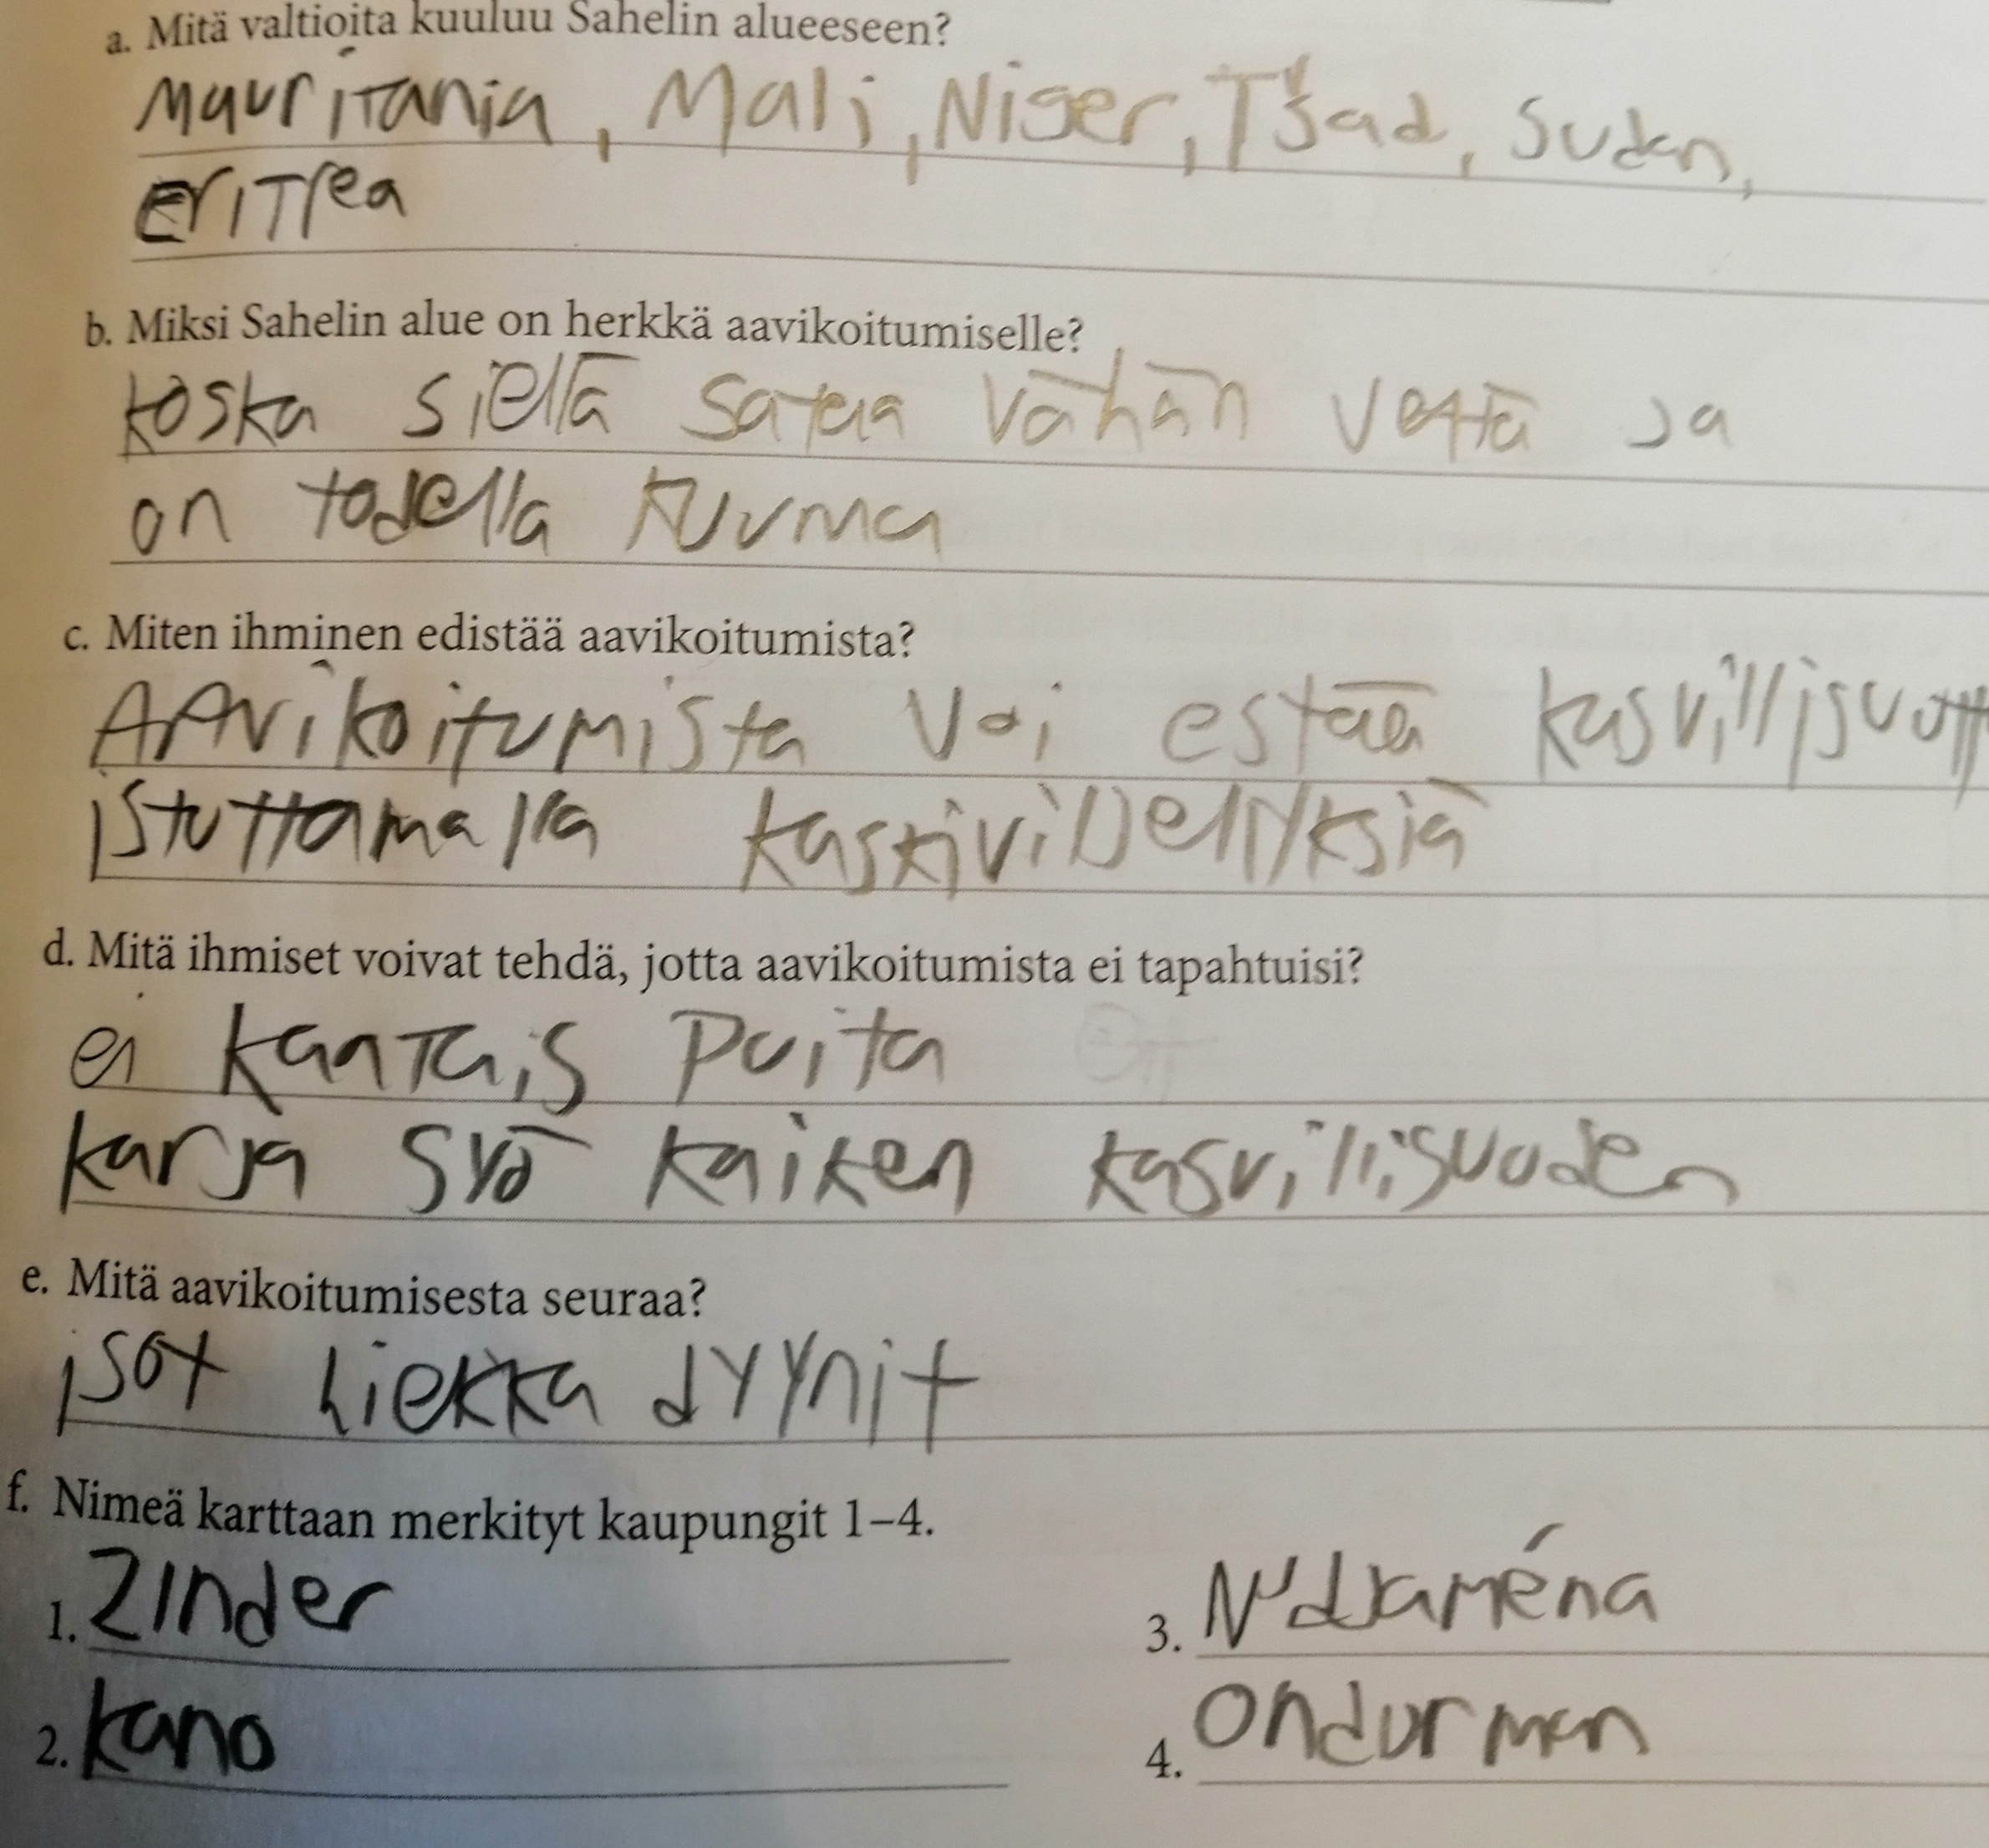 a. Mitä valtioita kuuluu Sahelin alueeseen?
Mauritania, Mali, Niger, Tšad, Sudan,
Eritrea
b. Miksi Sahelin alue on herkkä aavikoitumiselle?
koska siellä sataa vähän vettä ja
on todella kuuma
c. Miten ihminen edistää aavikoitumista?
AAvikoitumista voi estää kasvillisuutt
istuttamalla kaskiviljelyksiä
d. Mitä ihmiset voivat tehdä, jotta aavikoitumista ei tapahtuisi?
ei kaatais puita
karja syö kaiken kasvillisuuden
e. Mitä aavikoitumisesta seuraa?
isot hiekka dyynit
f. Nimeä karttaan merkityt kaupungit 1–4.
1. Zinder
3. N'djaména
2. kano
4. Ondurman